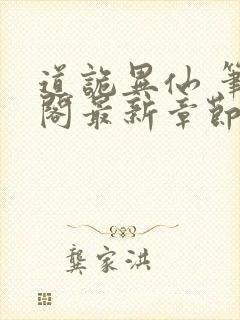 道詭異仙 筆
閣最新章節
龔家洪